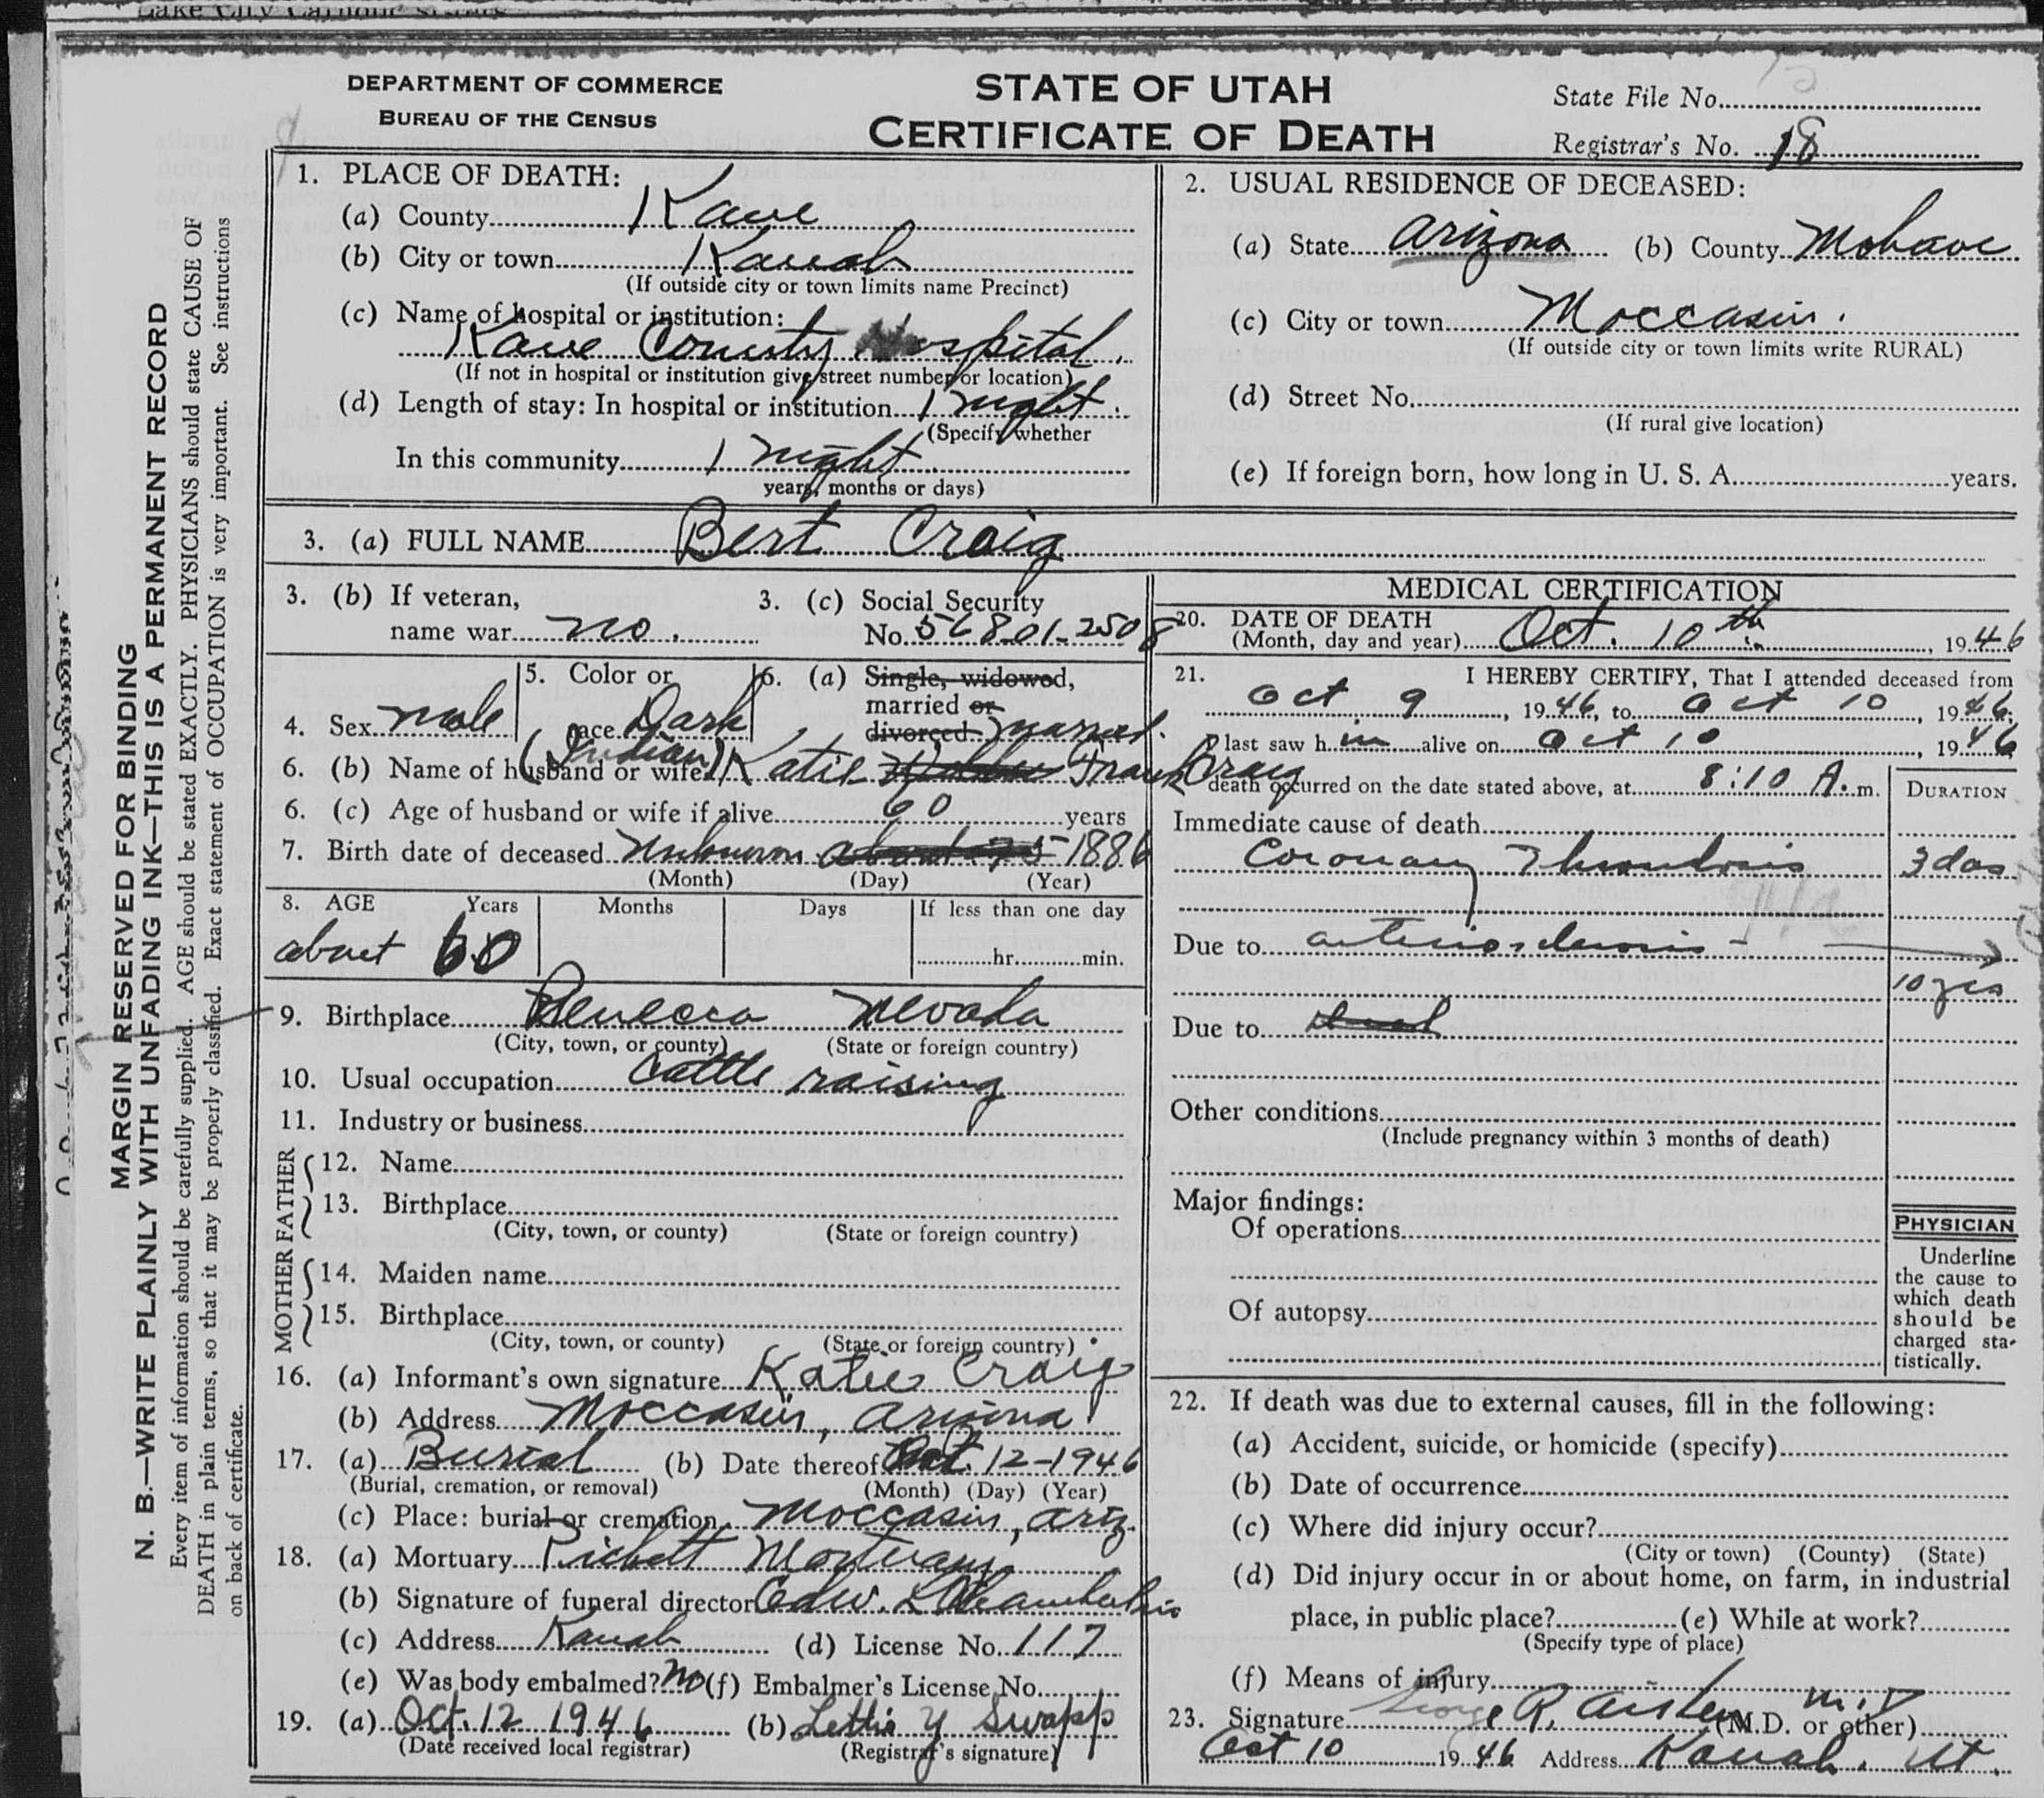 DEPARTMENT OF COMMERCE
BUREAU OF THE CENSUS
STATE OF UTAH
CERTIFICATE OF DEATH
State File No.
Registrar's No. 18
MARGIN RESERVED FOR BINDING
N. B.—WRITE PLAINLY WITH UNFADING INK—THIS IS A PERMANENT RECORD
Every item of information should be carefully supplied. AGE should be stated EXACTLY. PHYSICIANS should state CAUSE OF
DEATH in plain terms, so that it may be properly classified. Exact statement of OCCUPATION is very important. See instructions
on back of certificate.
1. PLACE OF DEATH:
(a) County Kane
(b) City or town Kanab
(If outside city or town limits name Precinct)
(c) Name of hospital or institution:
Kane County Hospital
(If not in hospital or institution give street number or location)
(d) Length of stay: In hospital or institution 1 night.
(Specify whether
In this community 1 night
years, months or days)
2. USUAL RESIDENCE OF DECEASED:
(a) State Arizona (b) County Mohave
(c) City or town Moccasin.
(If outside city or town limits write RURAL)
(d) Street No.
(If rural give location)
(e) If foreign born, how long in U. S. A. years.
3. (a) FULL NAME Bert Craig
3. (b) If veteran,
name war no.
3. (c) Social Security
No. 568-01-2508
4. Sex male
5. Color or
race Dark
(Indian)
6. (a) Single, widowed,
married or
divorced. married.
6. (b) Name of husband or wife Katie Frank Craig
6. (c) Age of husband or wife if alive 60 years
7. Birth date of deceased Unknown about 75 1886
(Month) (Day) (Year)
8. AGE Years Months Days If less than one day
about 60 hr. min.
9. Birthplace Nevada
(City, town, or county) (State or foreign country)
10. Usual occupation Cattle raising
11. Industry or business
FATHER
12. Name
13. Birthplace
(City, town, or county) (State or foreign country)
MOTHER
14. Maiden name
15. Birthplace
(City, town, or county) (State or foreign country)
16. (a) Informant's own signature Katie Craig
(b) Address Moccasin, Arizona
17. (a) Burial (b) Date thereof Oct. 12-1946
(Burial, cremation, or removal) (Month) (Day) (Year)
(c) Place: burial or cremation Moccasin, Ariz.
18. (a) Mortuary Pickett Mortuary
(b) Signature of funeral director Edw. L.
(c) Address Kanab (d) License No. 117
(e) Was body embalmed? No (f) Embalmer's License No.
19. (a) Oct. 12 1946 (b) Lettie Y Swapp
(Date received local registrar) (Registrar's signature)
MEDICAL CERTIFICATION
20. DATE OF DEATH
(Month, day and year) Oct. 10th, 1946
21. I HEREBY CERTIFY, That I attended deceased from
Oct 9, 1946, to Oct 10, 1946.
I last saw him alive on Oct 10, 1946
death occurred on the date stated above, at 8:10 A. m.
DURATION
Immediate cause of death
Coronary Thrombosis 3 das
Due to arteriosclerosis -
10 yrs
Due to
Other conditions
(Include pregnancy within 3 months of death)
Major findings:
Of operations
Of autopsy
PHYSICIAN
Underline
the cause to
which death
should be
charged sta-
tistically.
22. If death was due to external causes, fill in the following:
(a) Accident, suicide, or homicide (specify)
(b) Date of occurrence
(c) Where did injury occur?
(City or town) (County) (State)
(d) Did injury occur in or about home, on farm, in industrial
place, in public place? (e) While at work?
(Specify type of place)
(f) Means of injury
23. Signature George R. Aiken M.D (M.D. or other)
Oct 10 1946 Address Kanab, Ut.